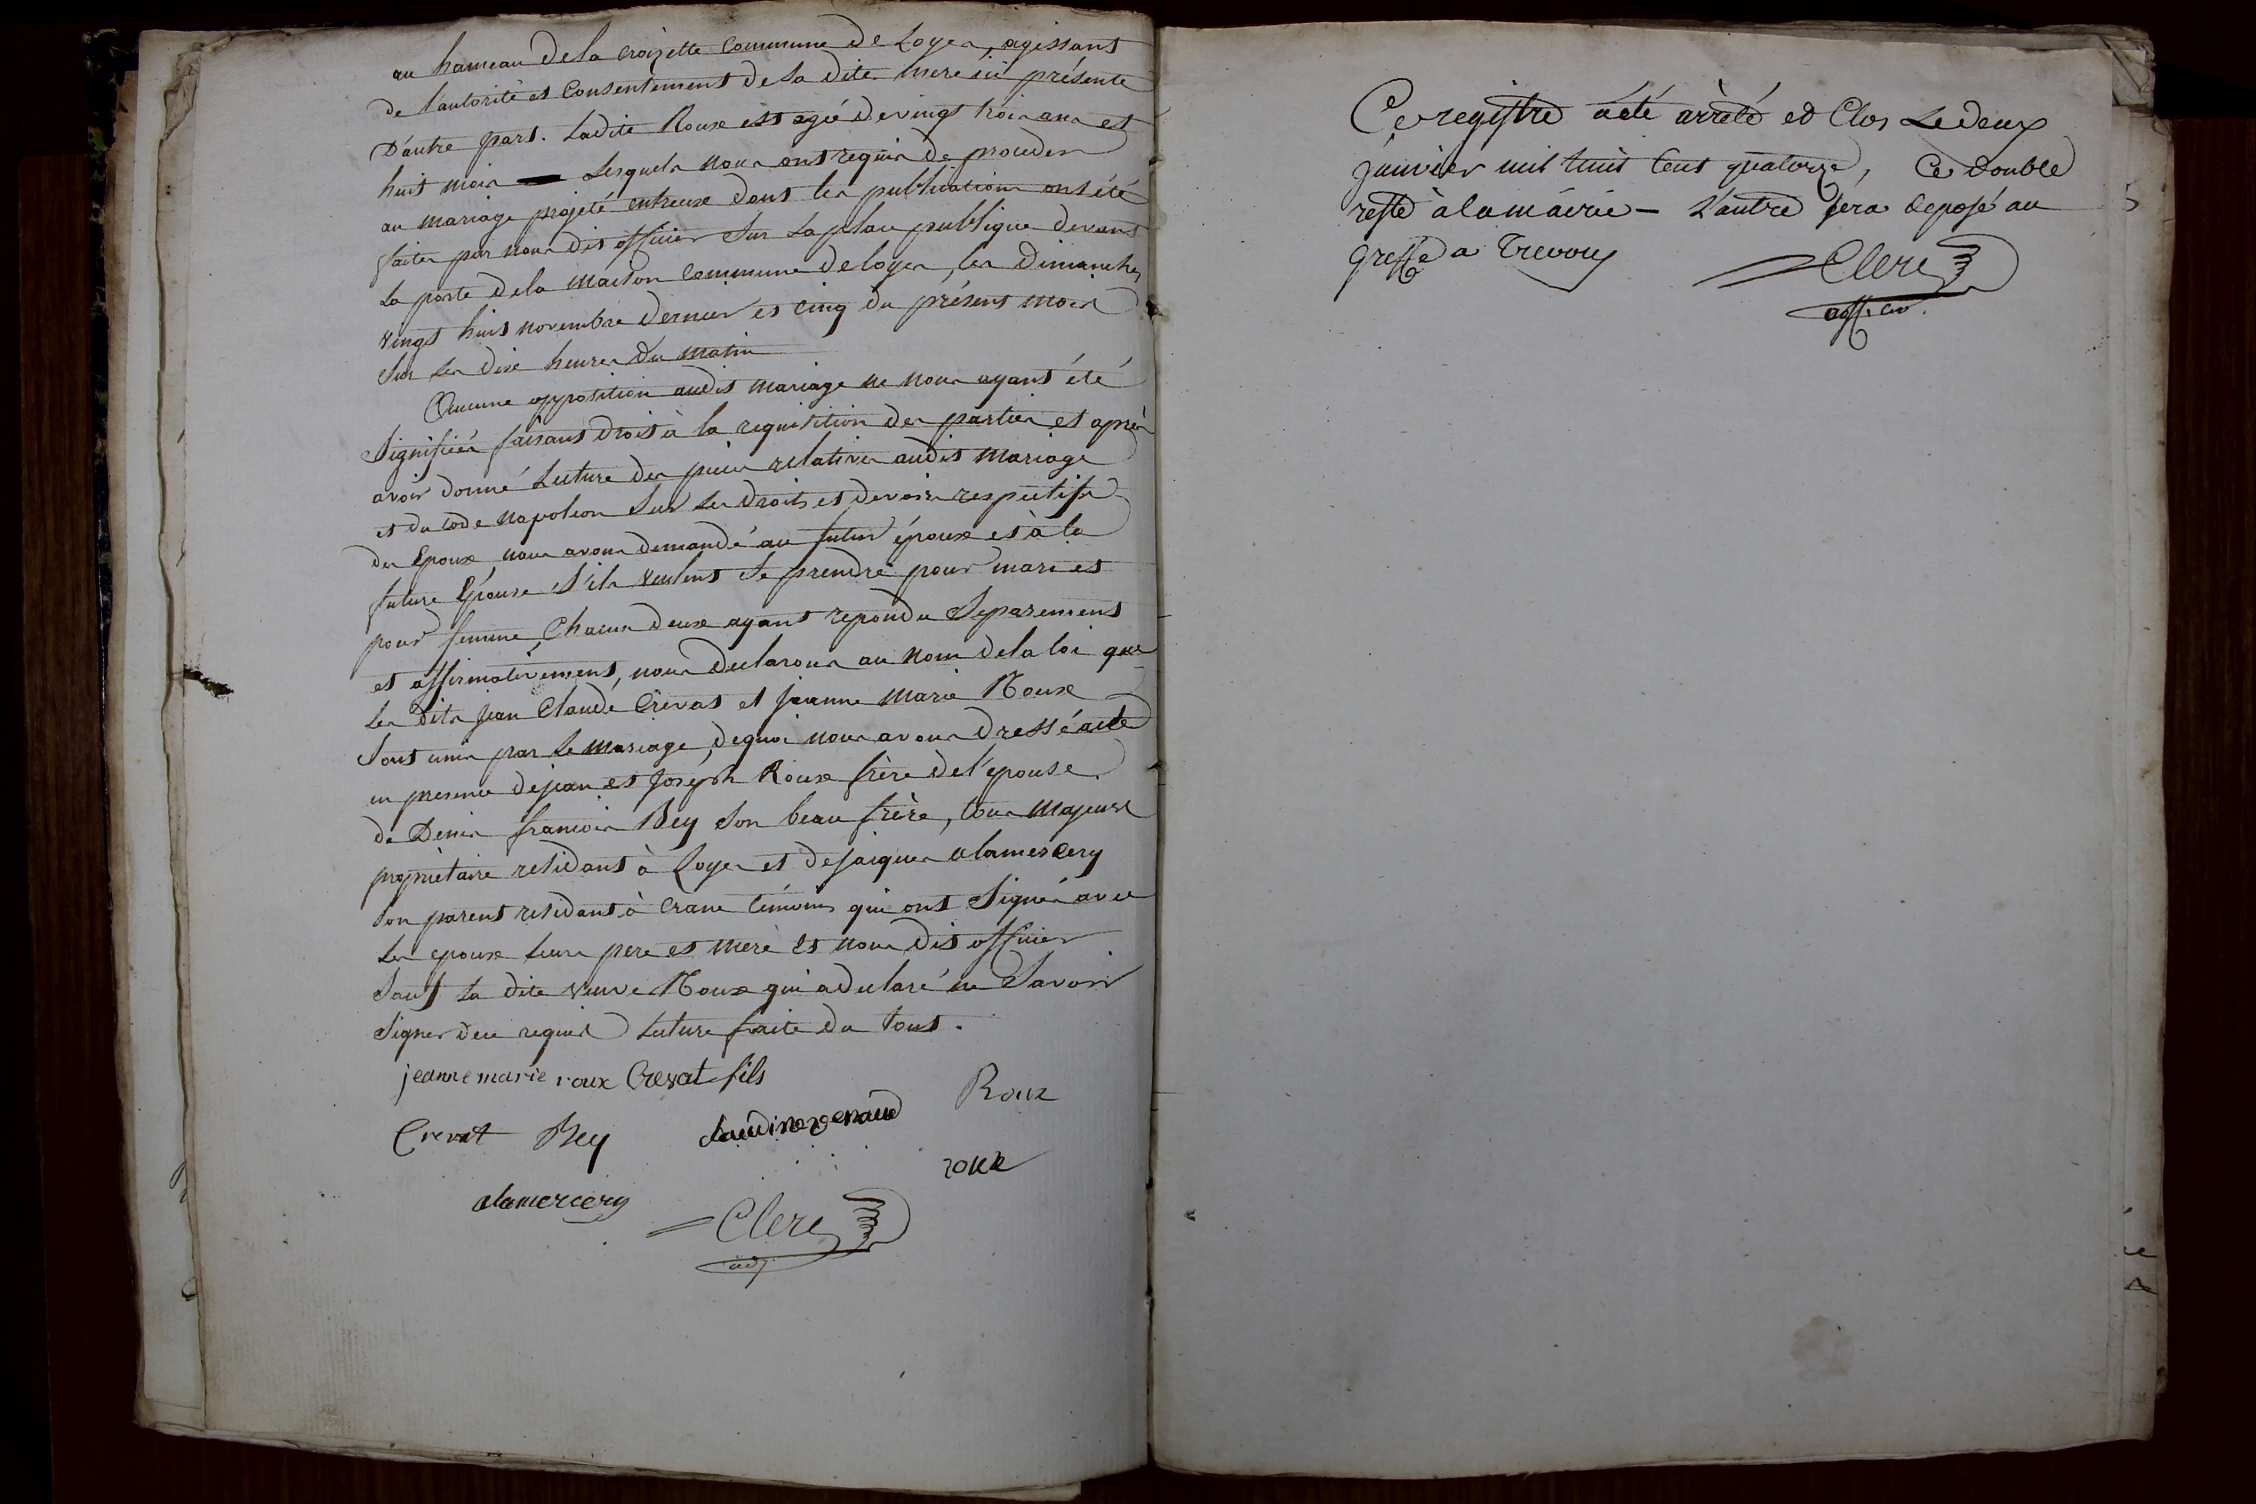 au hameau de la croizette commune de Loyes, agissant
de l'autorité et Consentement de sa dite mere ici présente
D'autre part. Ladite Roux est agée de vingt trois ans et
huit mois — Lesquels nous ont requis de proceder
au mariage projeté entreux dont les publications ont été
faites par nous dit officier Sur la place publique devant
La porte de la maison Commune de loyes, les Dimanches
vingt huit novembre dernier et cinq du présent mois
Sur les dix heures du matin
Aucune opposition audit mariage ne nous ayant été
Signifiée faisant droit à la requisition des parties et après
avoir donné Lecture des pieces relatives audit Mariage
et du Code Napoleon Sur les droits et devoirs respectifs
des Epoux, nous avons demandé au futur époux et à la
future Epouse S'ils veulent Se prendre pour mari et
pour femme, Chacun deux ayant repondu Separement
et affirmativement, nous declarons au Nom de la loi que
les dits Jean Claude Crevat et Jeanne Marie Roux
Sont unis par le mariage, dequoi nous avons dressé acte
en presence de jean et Joseph Roux frère de l'epouse
de Denis francois Bey son beau frère, tous Majeurs
proprietaire residant à Loyes et de jacques alamercery
son parent residant à Crans témoins qui ont Signés avec
Les epoux leurs pere et mere et nous dit officier
Sauf la dite veuve Roux qui a declaré ne Savoir
Signer de ce requis Lecture faite du tout.
jeanne marie roux Crevat fils
Roux
Crevat Bey claudine renaud
roux
alamercery
Clerc
adj
Ce registre a été arrèté et Clos Le deux
janvier mil huit Cent quatorze, Ce double
reste à la mairie — L'autre sera deposé au
greffe a Trevoux
Clerc
off. civ.